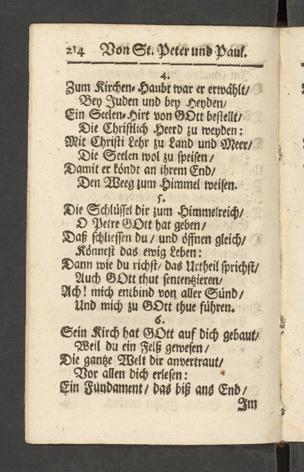 214 Von St. Peter und Paul.
4.
Zum Kirchen-Haubt war er erwählt/
Bey Juden und bey Heyden/
Ein Seelen-Hirt von GOtt bestellt/
Die Christlich Heerd zu weyden:
Mit Christi Lehr zu Land und Meer/
Die Seelen wol zu speisen/
Damit er köndt an ihrem End/
Den Weeg zum Himmel weisen.
5.
Die Schlüssel dir zum Himmelreich/
O Petre GOtt hat geben/
Daß schliessen du/ und öffnen gleich/
Könnest das ewig Leben:
Dann wie du richst/ das Urtheil sprichst/
Auch GOtt thut sentenzieren/
Ach! mich entbind von aller Sünd/
Und mich zu GOtt thue führen.
6.
Sein Kirch hat GOtt auf dich gebaut/
Weil du ein Felß gewesen/
Die gantze Welt dir anvertraut/
Vor allen dich erlesen:
Ein Fundament/ das biß ans End/
Im